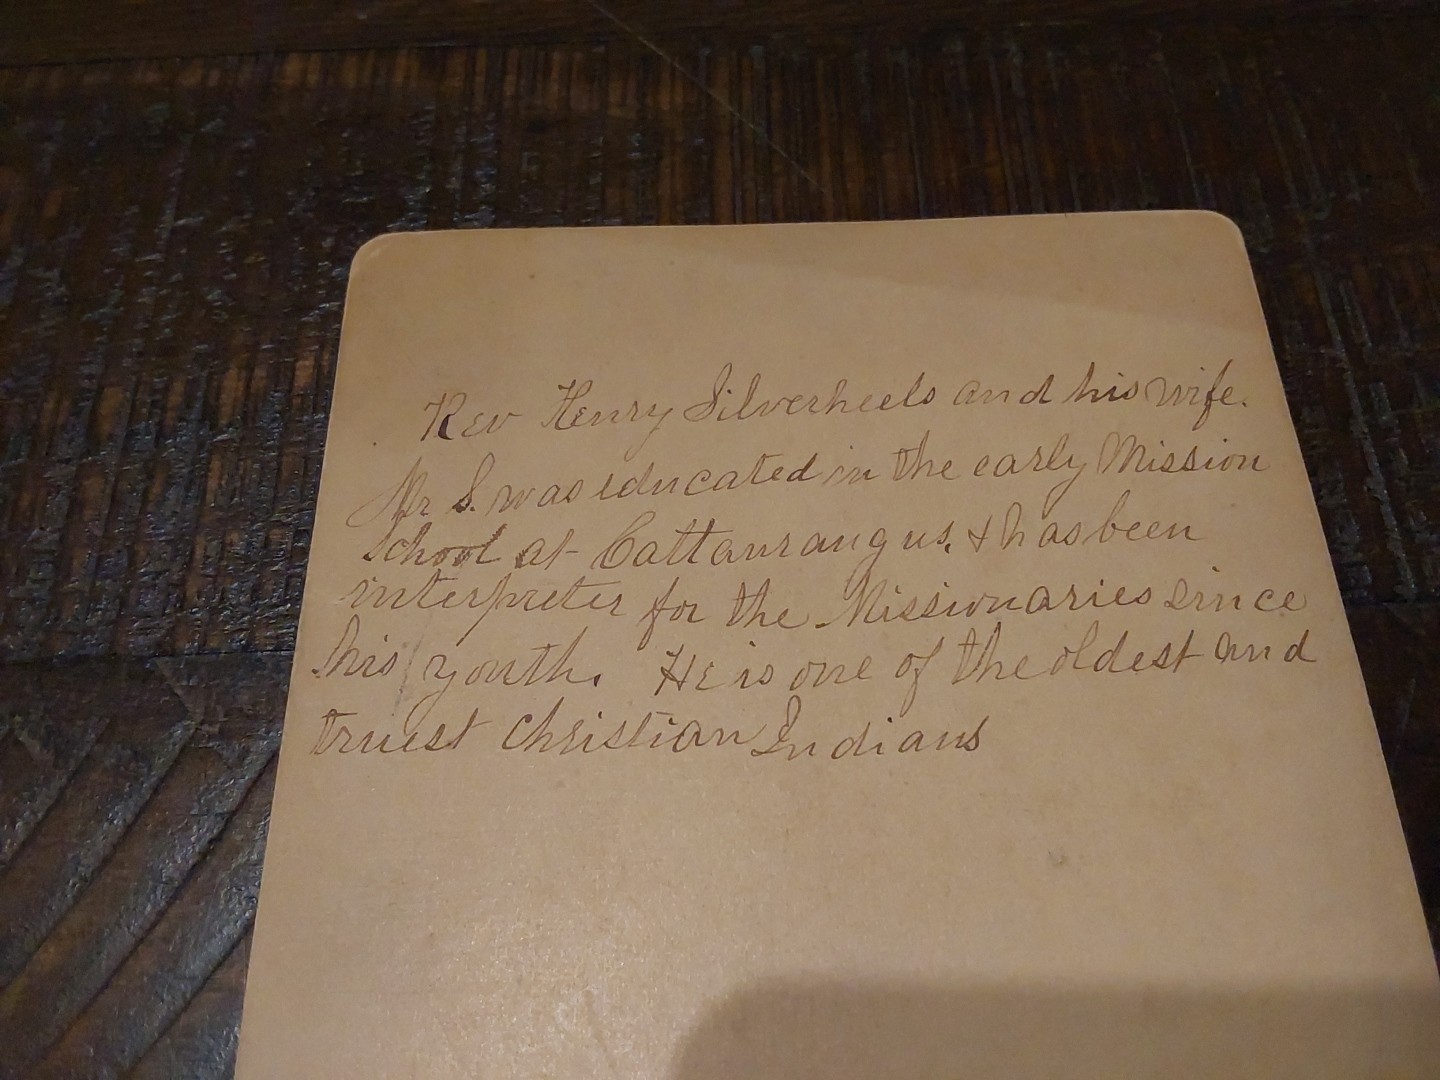 Rev Henry Silverheels and his wife.
Mr S. was educated in the early Mission
School at Cattauraugus. & has been
interpreter for the Missionaries since
his youth. He is one of the oldest and
truest Christian Indians